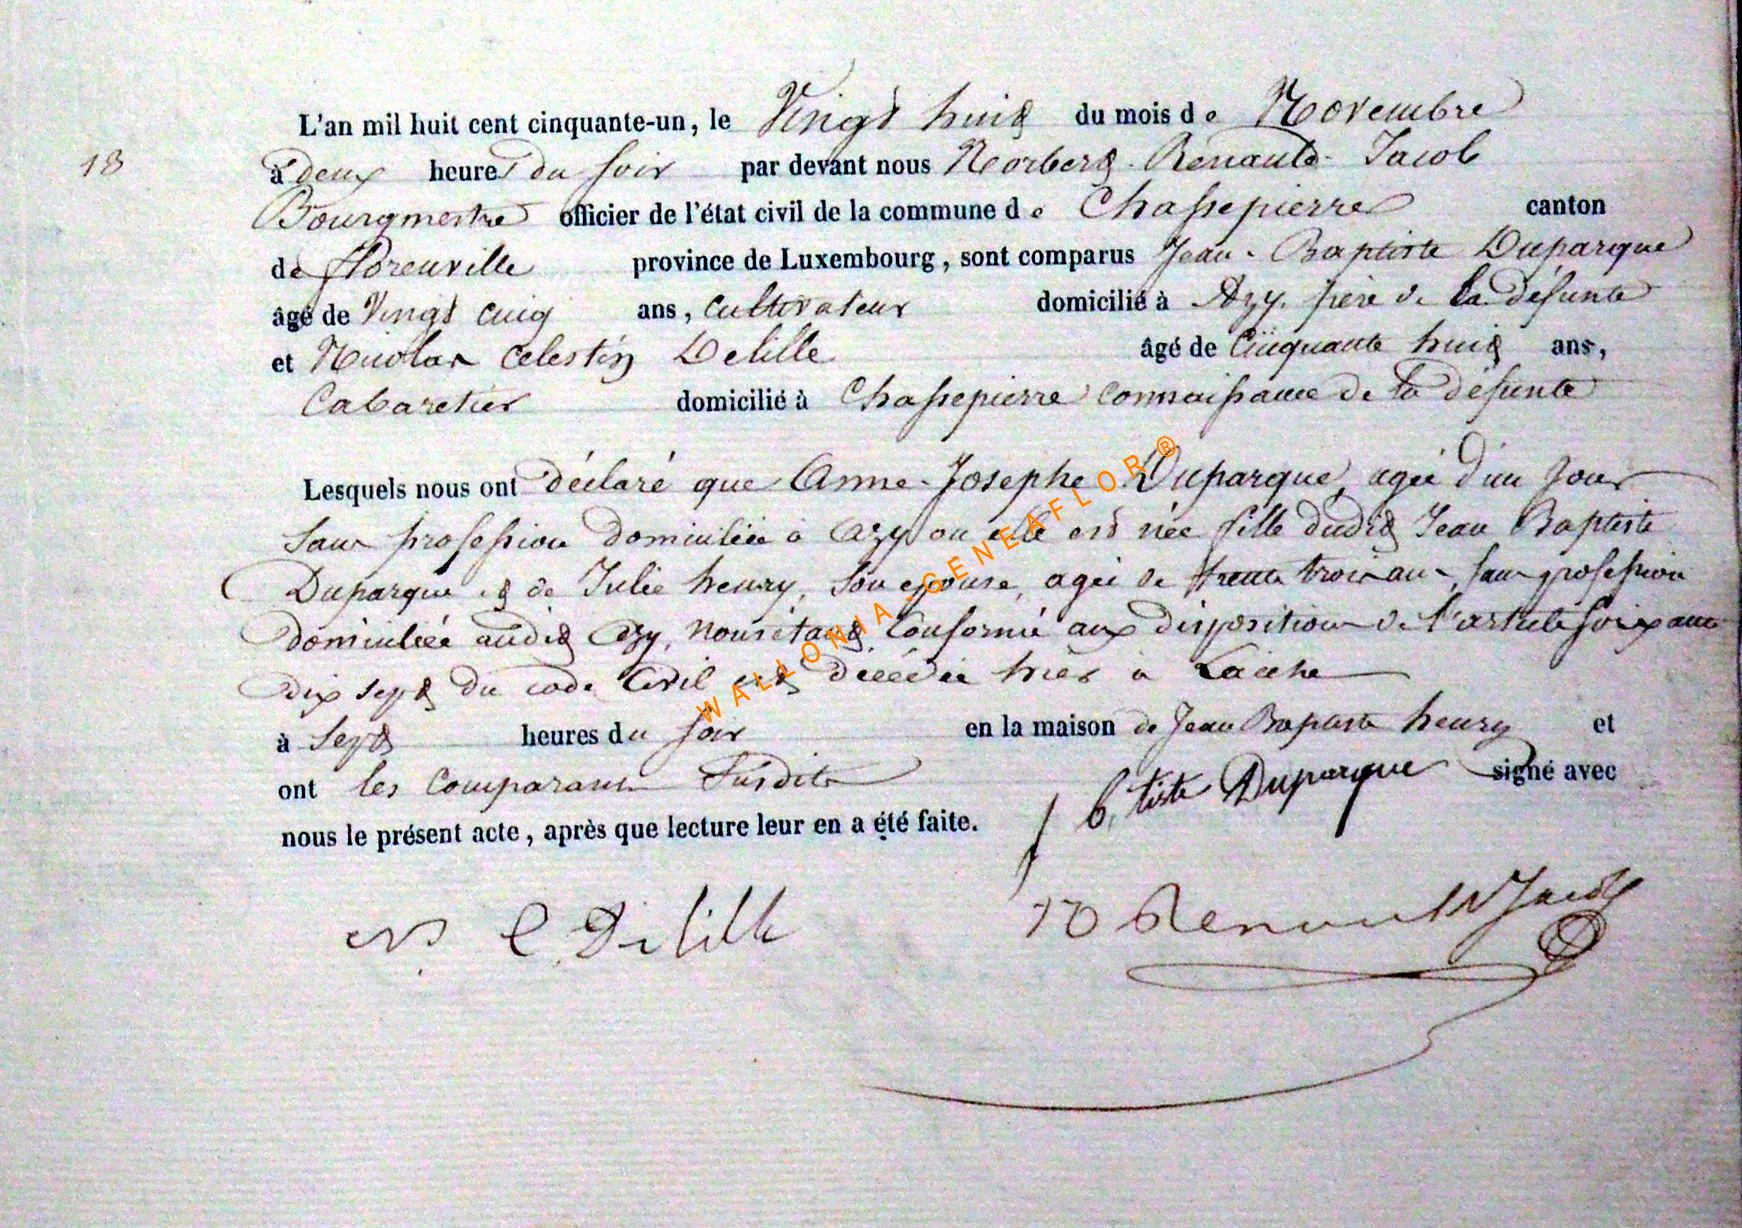 L'an mil huit cent cinquante-un, le Vingt huit du mois de Novembre
18
à deux heures du soir par devant nous Norbert Renauld Jacob
Bourgmestre officier de l'état civil de la commune de Chassepierre canton
de florenville province de Luxembourg, sont comparus Jean-Baptiste Duparque
âgé de Vingt cinq ans, Cultivateur domicilié à Azy, père de la défunte
et Nicolas Celestin Delille âgé de Cinquante huit ans,
Cabaretier domicilié à Chassepierre connaissance de la défunte
Lesquels nous ont déclaré que Anne-Josephe Duparque, agée d'un jour
sans profession domiciliée à Azy ou elle est née fille dudit Jean Baptiste
Duparque et de Julie henry, son epouse, agée de trente trois ans, sans profession
domiciliée audit Azy, nous étant conformé aux dispositions de l'article soixante
dix sept du code Civil est décédée hier à Laiche
à sept heures du soir en la maison de Jean Baptiste henry et
ont les comparans susdits signé avec
nous le présent acte, après que lecture leur en a été faite.
J b,tiste Duparque
N. C. Delille
N Renauld Jacob
WALLONIA-GENEAFLOR®